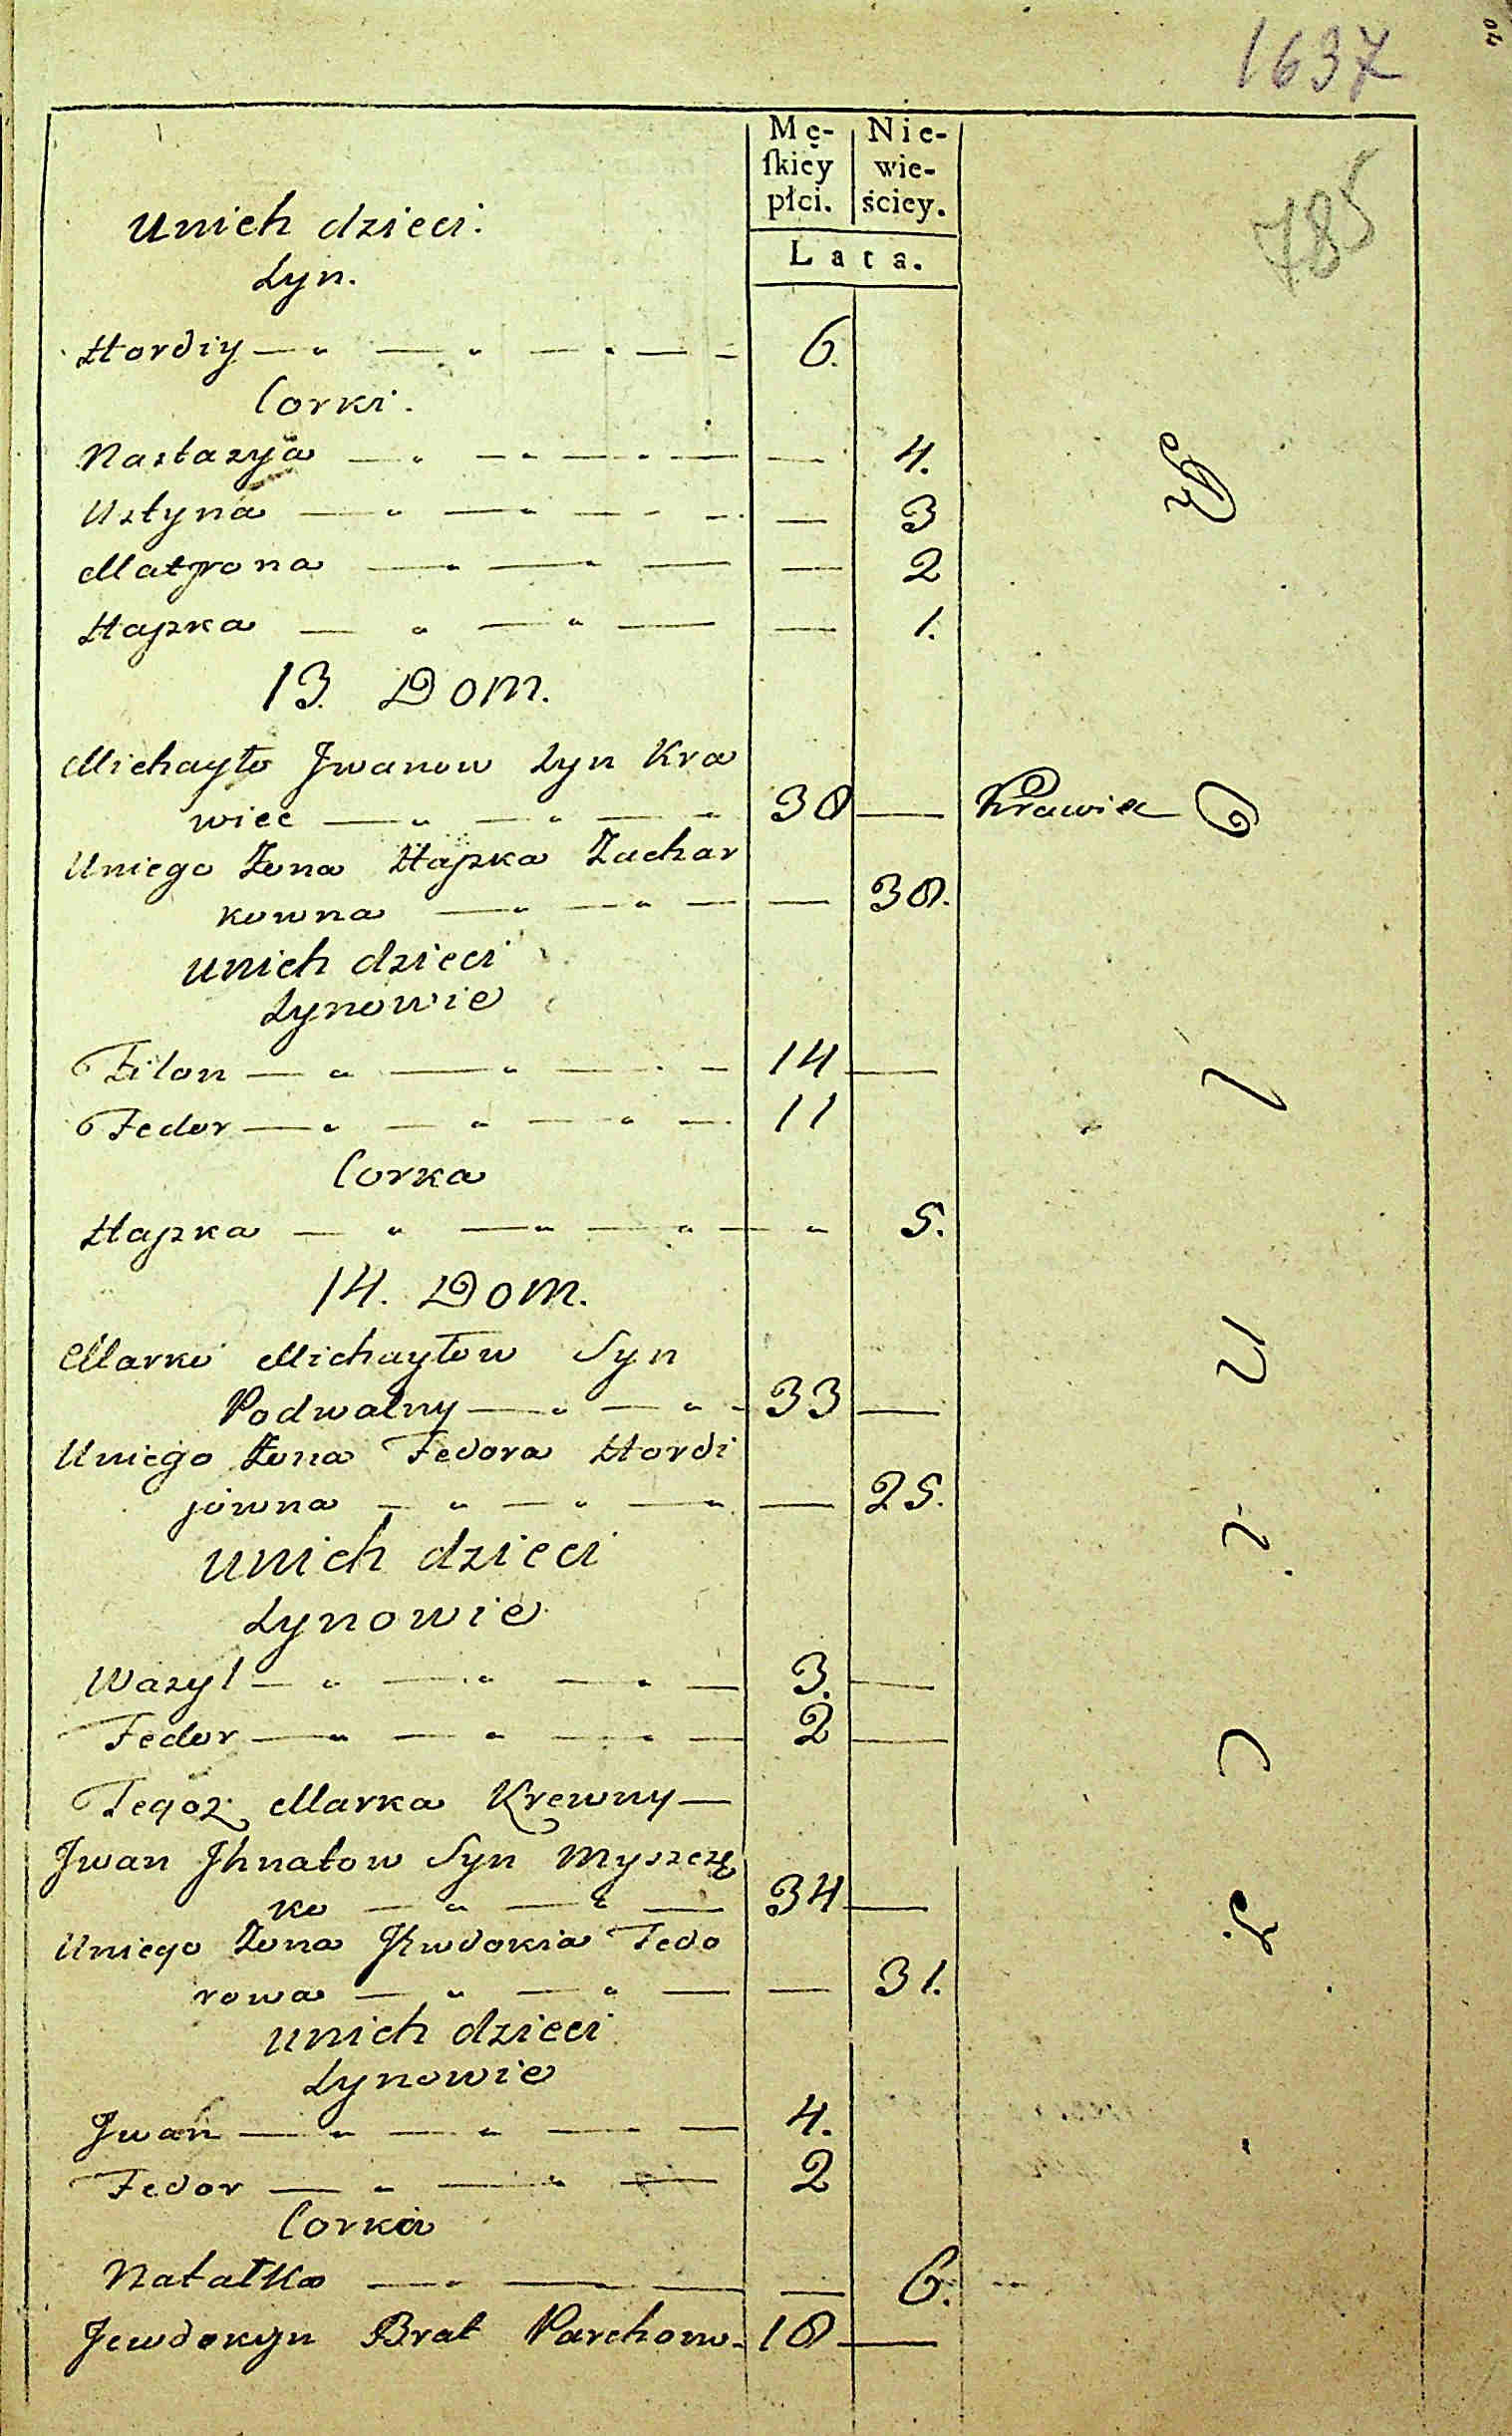 1637
785
Mę- Nie-
skiey wie-
płci. ściey.
Lata.
Unich dzieci.
Syn.
Hordiy 6.
Corki.
Nastazya 4.
Ustyna 3
Matrona 2
Hapka 1.
13. Dom.
Michayło Jwanow Syn Kra
wiec 38 Krawiec
Uniego Zona Hapka Zachar
kowna 38.
Unich dzieci
Synowie
Filon 14
Fedor 11
Corka
Hapka 5.
14. Dom.
Marko Michayłow Syn
Podwalny 33
Uniego Zona Fedora Hordi
jowna 25.
Unich dzieci
Synowie
Wasyl 3.
Fedor 2
Tegoż Marka Krewny
Jwan Jhnatow Syn Myszcz
ko 34
Uniego Zona Fedo
rowa 31.
Unich dzieci
Synowie
Jwan 4.
Fedor 2
Corka
Natałka 6.
Jewdokyn Brat Parchom 18